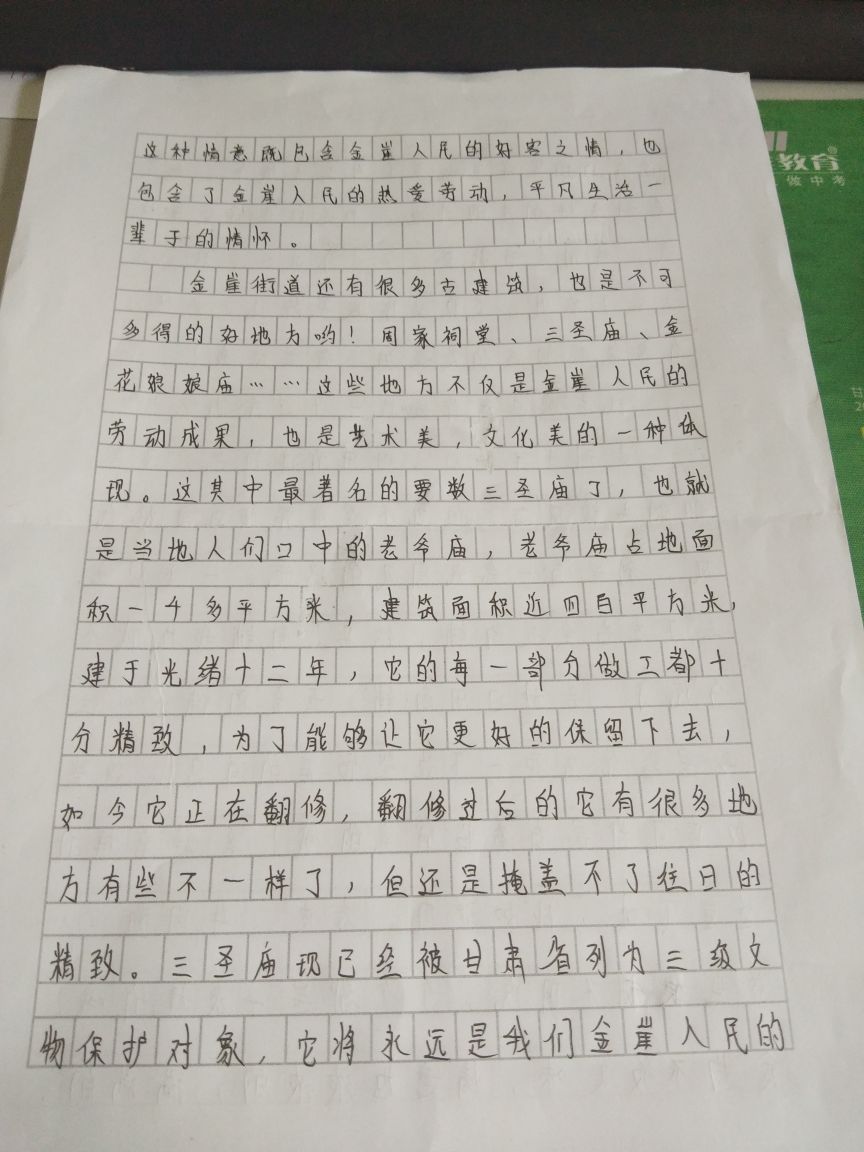 这种情意既包含金崖人民的好客之情，也
包含了金崖人民的热爱劳动，平凡生活一
辈子的情怀。
金崖街道还有很多古建筑，也是不可
多得的好地方哟！周家祠堂、三圣庙、金
花娘娘庙……这些地方不仅是金崖人民的
劳动成果，也是艺术美，文化美的一种体
现。这其中最著名的要数三圣庙了，也就
是当地人们口中的老爷庙，老爷庙占地面
积一千多平方米，建筑面积近四百平方米，
建于光绪十二年，它的每一部分做工都十
分精致，为了能够让它更好的保留下去，
如今它正在翻修，翻修过后的它有很多地
方有些不一样了，但还是掩盖不了往日的
精致。三圣庙现已经被甘肃省列为三级文
物保护对象，它将永远是我们金崖人民的
教育®
做中考
甘